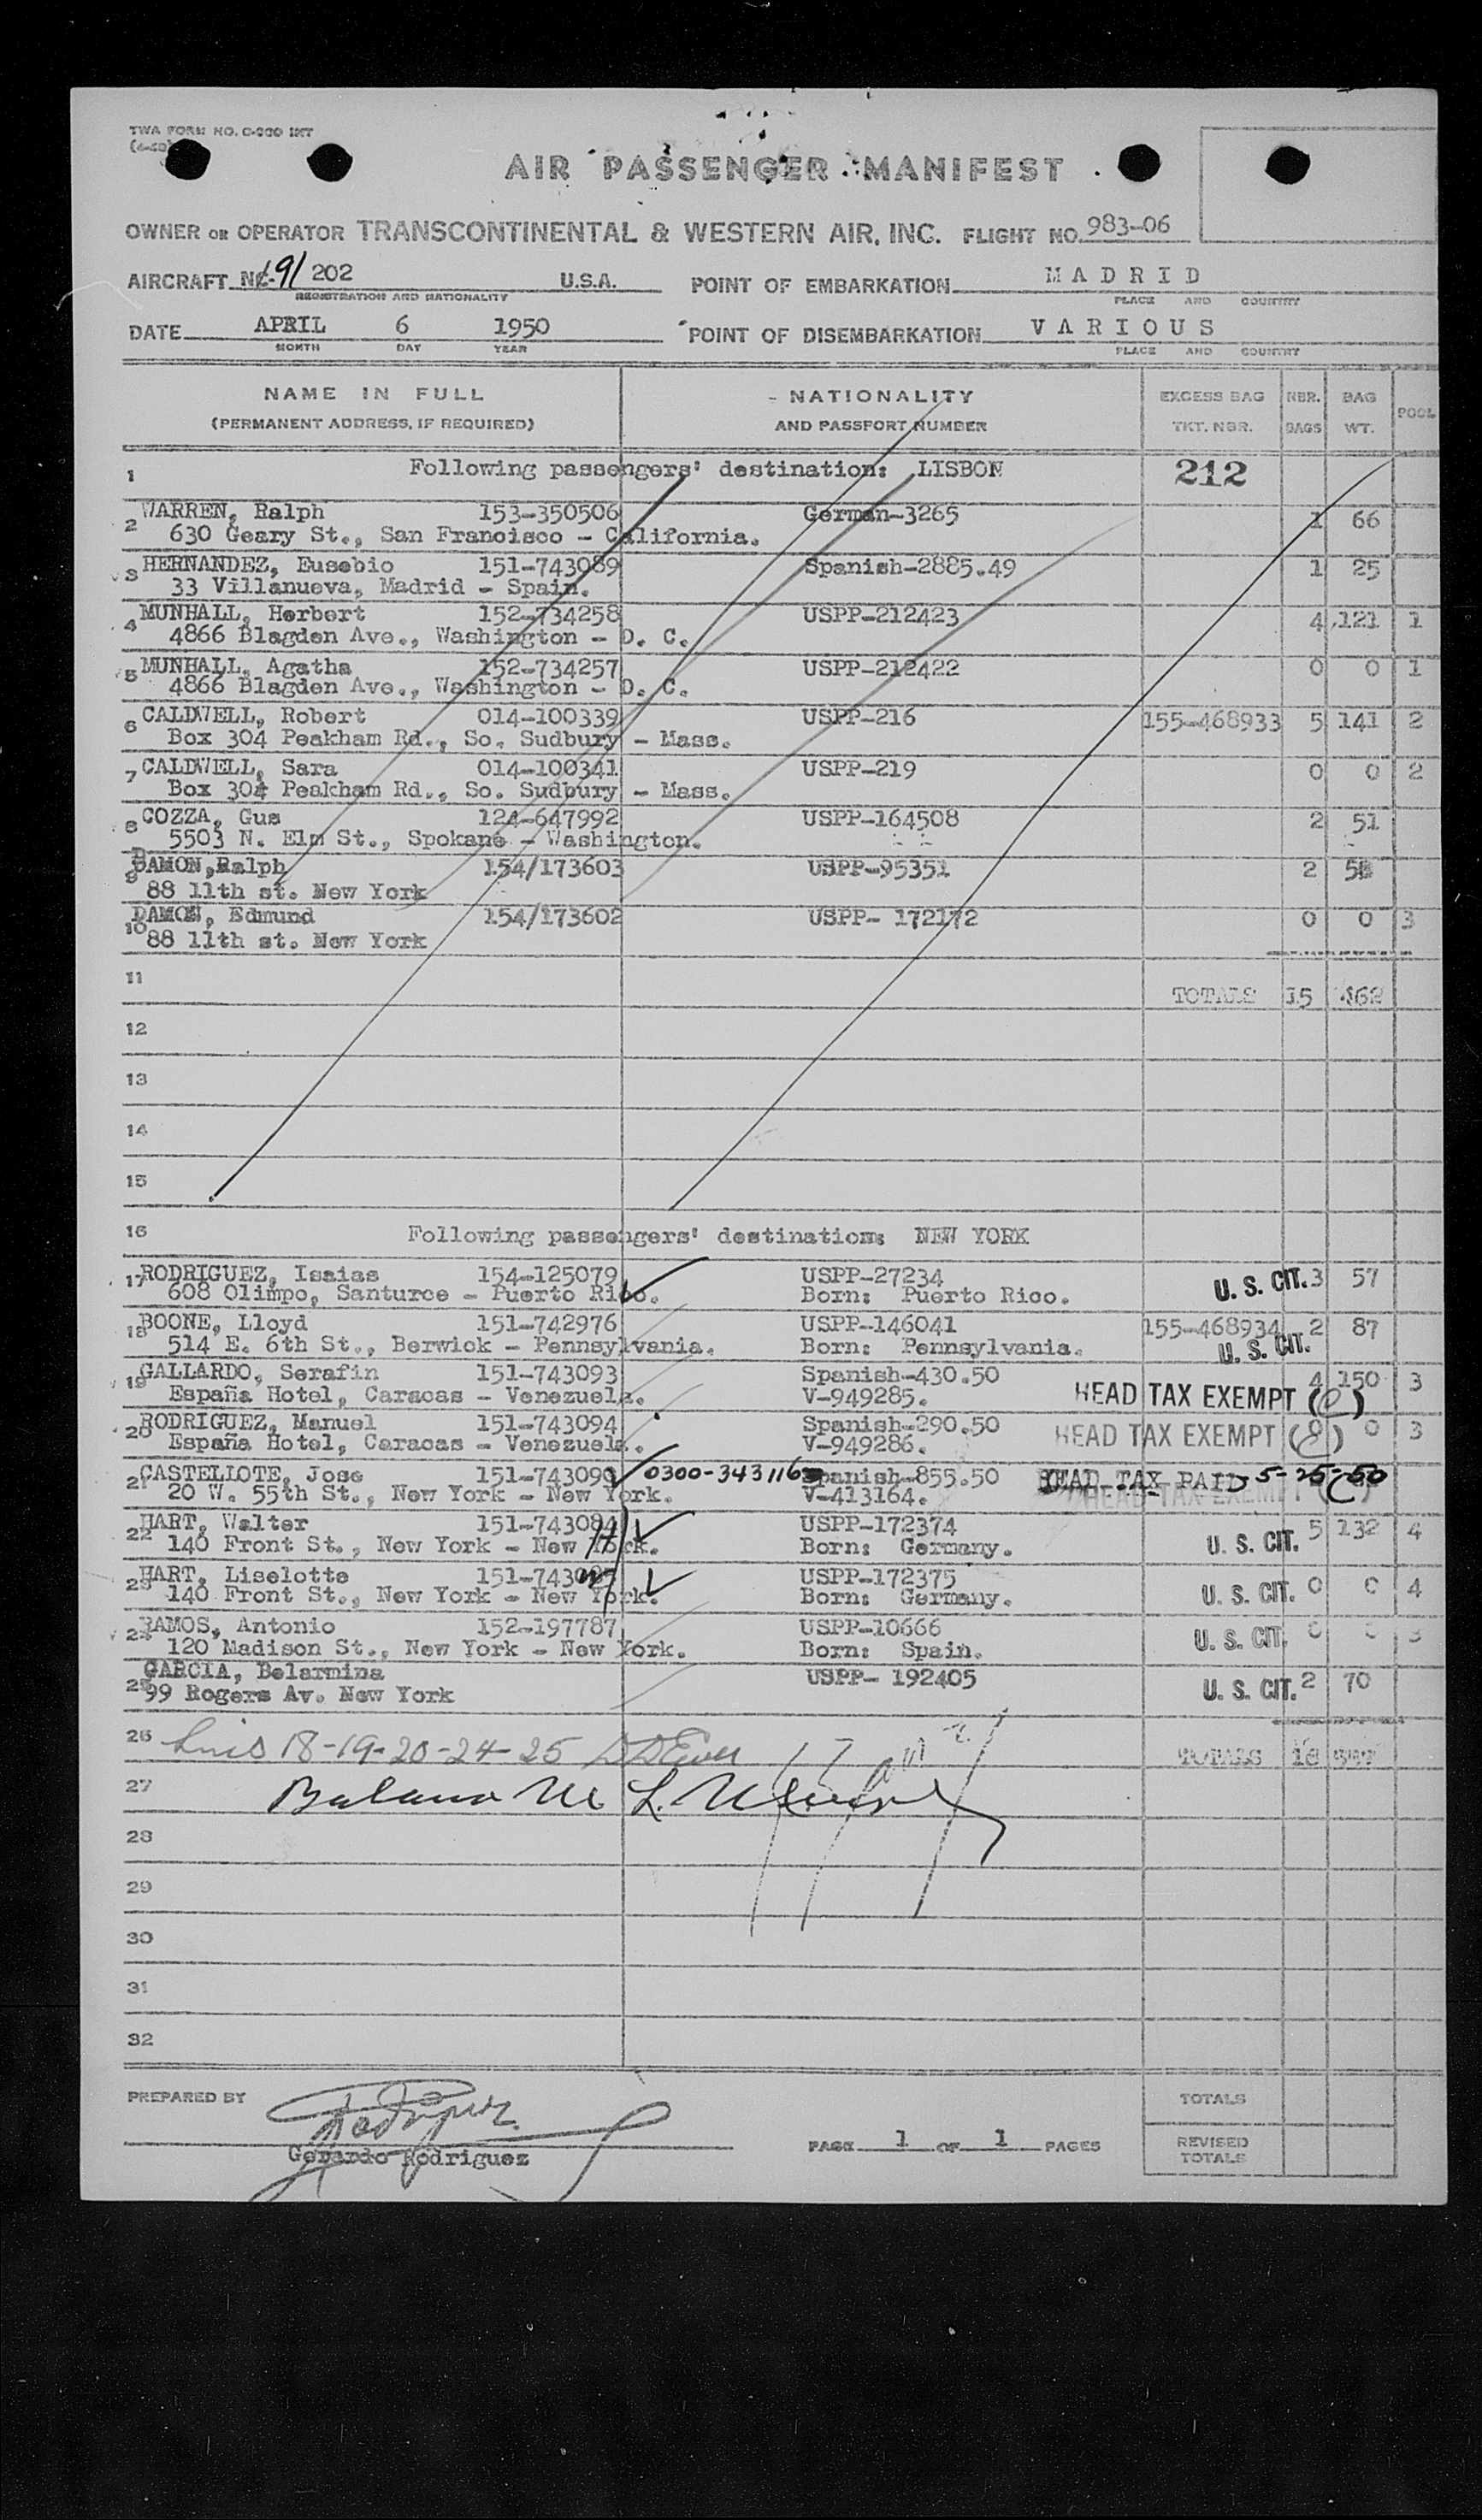 TWA FORM NO. C-200 INT
AIR PASSENGER MANIFEST
OWNER OR OPERATOR TRANSCONTINENTAL & WESTERN AIR, INC. FLIGHT NO. 983-06
AIRCRAFT 91 202 U.S.A. POINT OF EMBARKATION MADRID
REGISTRATION AND NATIONALITY PLACE AND COUNTRY
DATE APRIL 6 1950 POINT OF DISEMBARKATION VARIOUS
MONTH DAY YEAR PLACE AND COUNTRY
NAME IN FULL NATIONALITY EXCESS BAG NBR. BAG POOL
(PERMANENT ADDRESS, IF REQUIRED) AND PASSPORT NUMBER TKT. NBR. BAGS WT.
1 Following passengers' destination: LISBON 212
2 WARREN, Ralph 153-350506 German-3265 1 66
630 Geary St., San Francisco - California.
3 HERNANDEZ, Eusebio 151-743089 Spanish-2885.49 1 25
33 Villanueva, Madrid - Spain.
4 MUNHALL, Herbert 152-734258 USPP-212423 4 121 1
4866 Blagden Ave., Washington - D. C.
5 MUNHALL, Agatha 152-734257 USPP-212422 0 0 1
4866 Blagden Ave., Washington - D. C.
6 CALDWELL, Robert 014-100339 USPP-216 155-468933 5 141 2
Box 304 Peakham Rd., So. Sudbury - Mass.
7 CALDWELL, Sara 014-100341 USPP-219 0 0 2
Box 304 Peakham Rd., So. Sudbury - Mass.
8 COZZA, Gus 124-647992 USPP-164508 2 51
5503 N. Elm St., Spokane - Washington.
9 DAMON, Ralph 154/173603 USPP-95351 2 58
88 11th st. New York
10 DAMON, Edmund 154/173602 USPP- 172172 0 0 3
88 11th st. New York
11 TOTALS 15 462
12
13
14
15
16 Following passengers' destination: NEW YORK
17 RODRIGUEZ, Isaias 154-125079 USPP-27234 U. S. CIT. 3 57
608 Olimpo, Santurce - Puerto Rico. Born: Puerto Rico.
18 BOONE, Lloyd 151-742976 USPP-146041 155-468934 2 87
514 E. 6th St., Berwick - Pennsylvania. Born: Pennsylvania. U. S. CIT.
19 GALLARDO, Serafin 151-743093 Spanish-430.50 4 150 3
España Hotel, Caracas - Venezuela. V-949285. HEAD TAX EXEMPT (C)
20 RODRIGUEZ, Manuel 151-743094 Spanish-290.50 HEAD TAX EXEMPT (C) 0 0 3
España Hotel, Caracas - Venezuela. V-949286.
21 CASTELLOTE, Jose 151-743090 0300-343116 Spanish-855.50 HEAD TAX PAID 5-25-50
20 W. 55th St., New York - New York. V-413164. HEAD TAX EXEMPT
22 HART, Walter 151-743084 USPP-172374 U. S. CIT. 5 132 4
140 Front St., New York - New York. Born: Germany.
23 HART, Liselotte 151-743085 USPP-172375 U. S. CIT. 0 0 4
140 Front St., New York - New York. Born: Germany.
24 RAMOS, Antonio 152-197787 USPP-10666 U. S. CIT. 0 0 3
120 Madison St., New York - New York. Born: Spain.
25 GARCIA, Belarmina USPP- 192405 U. S. CIT. 2 70
99 Rogers Av. New York
26 18-19-20-24-25 TOTALS
27 Balance
28
29
30
31
32
PREPARED BY TOTALS
Gerardo Rodriguez PAGE 1 OF 1 PAGES REVISED TOTALS